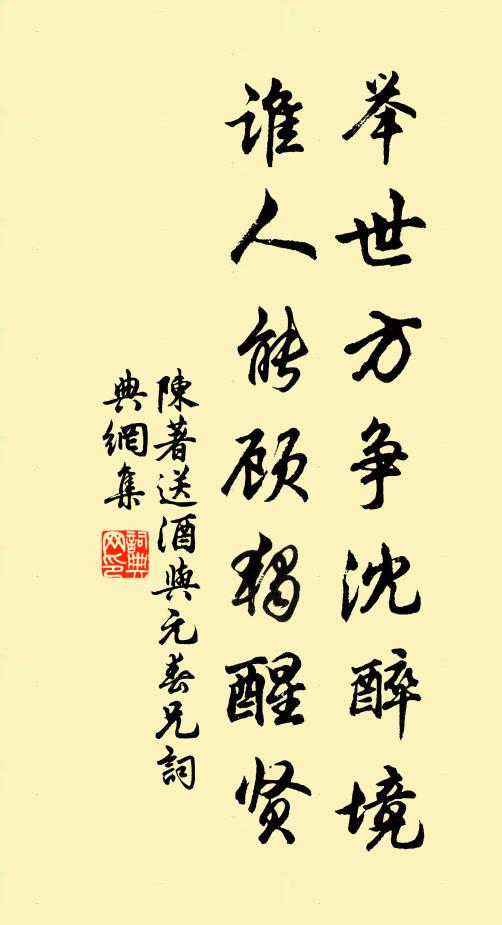 举世方争沈醉境
谁人能顾独醒贤
陳著送酒與元春兄詞
典網集
詞典網印